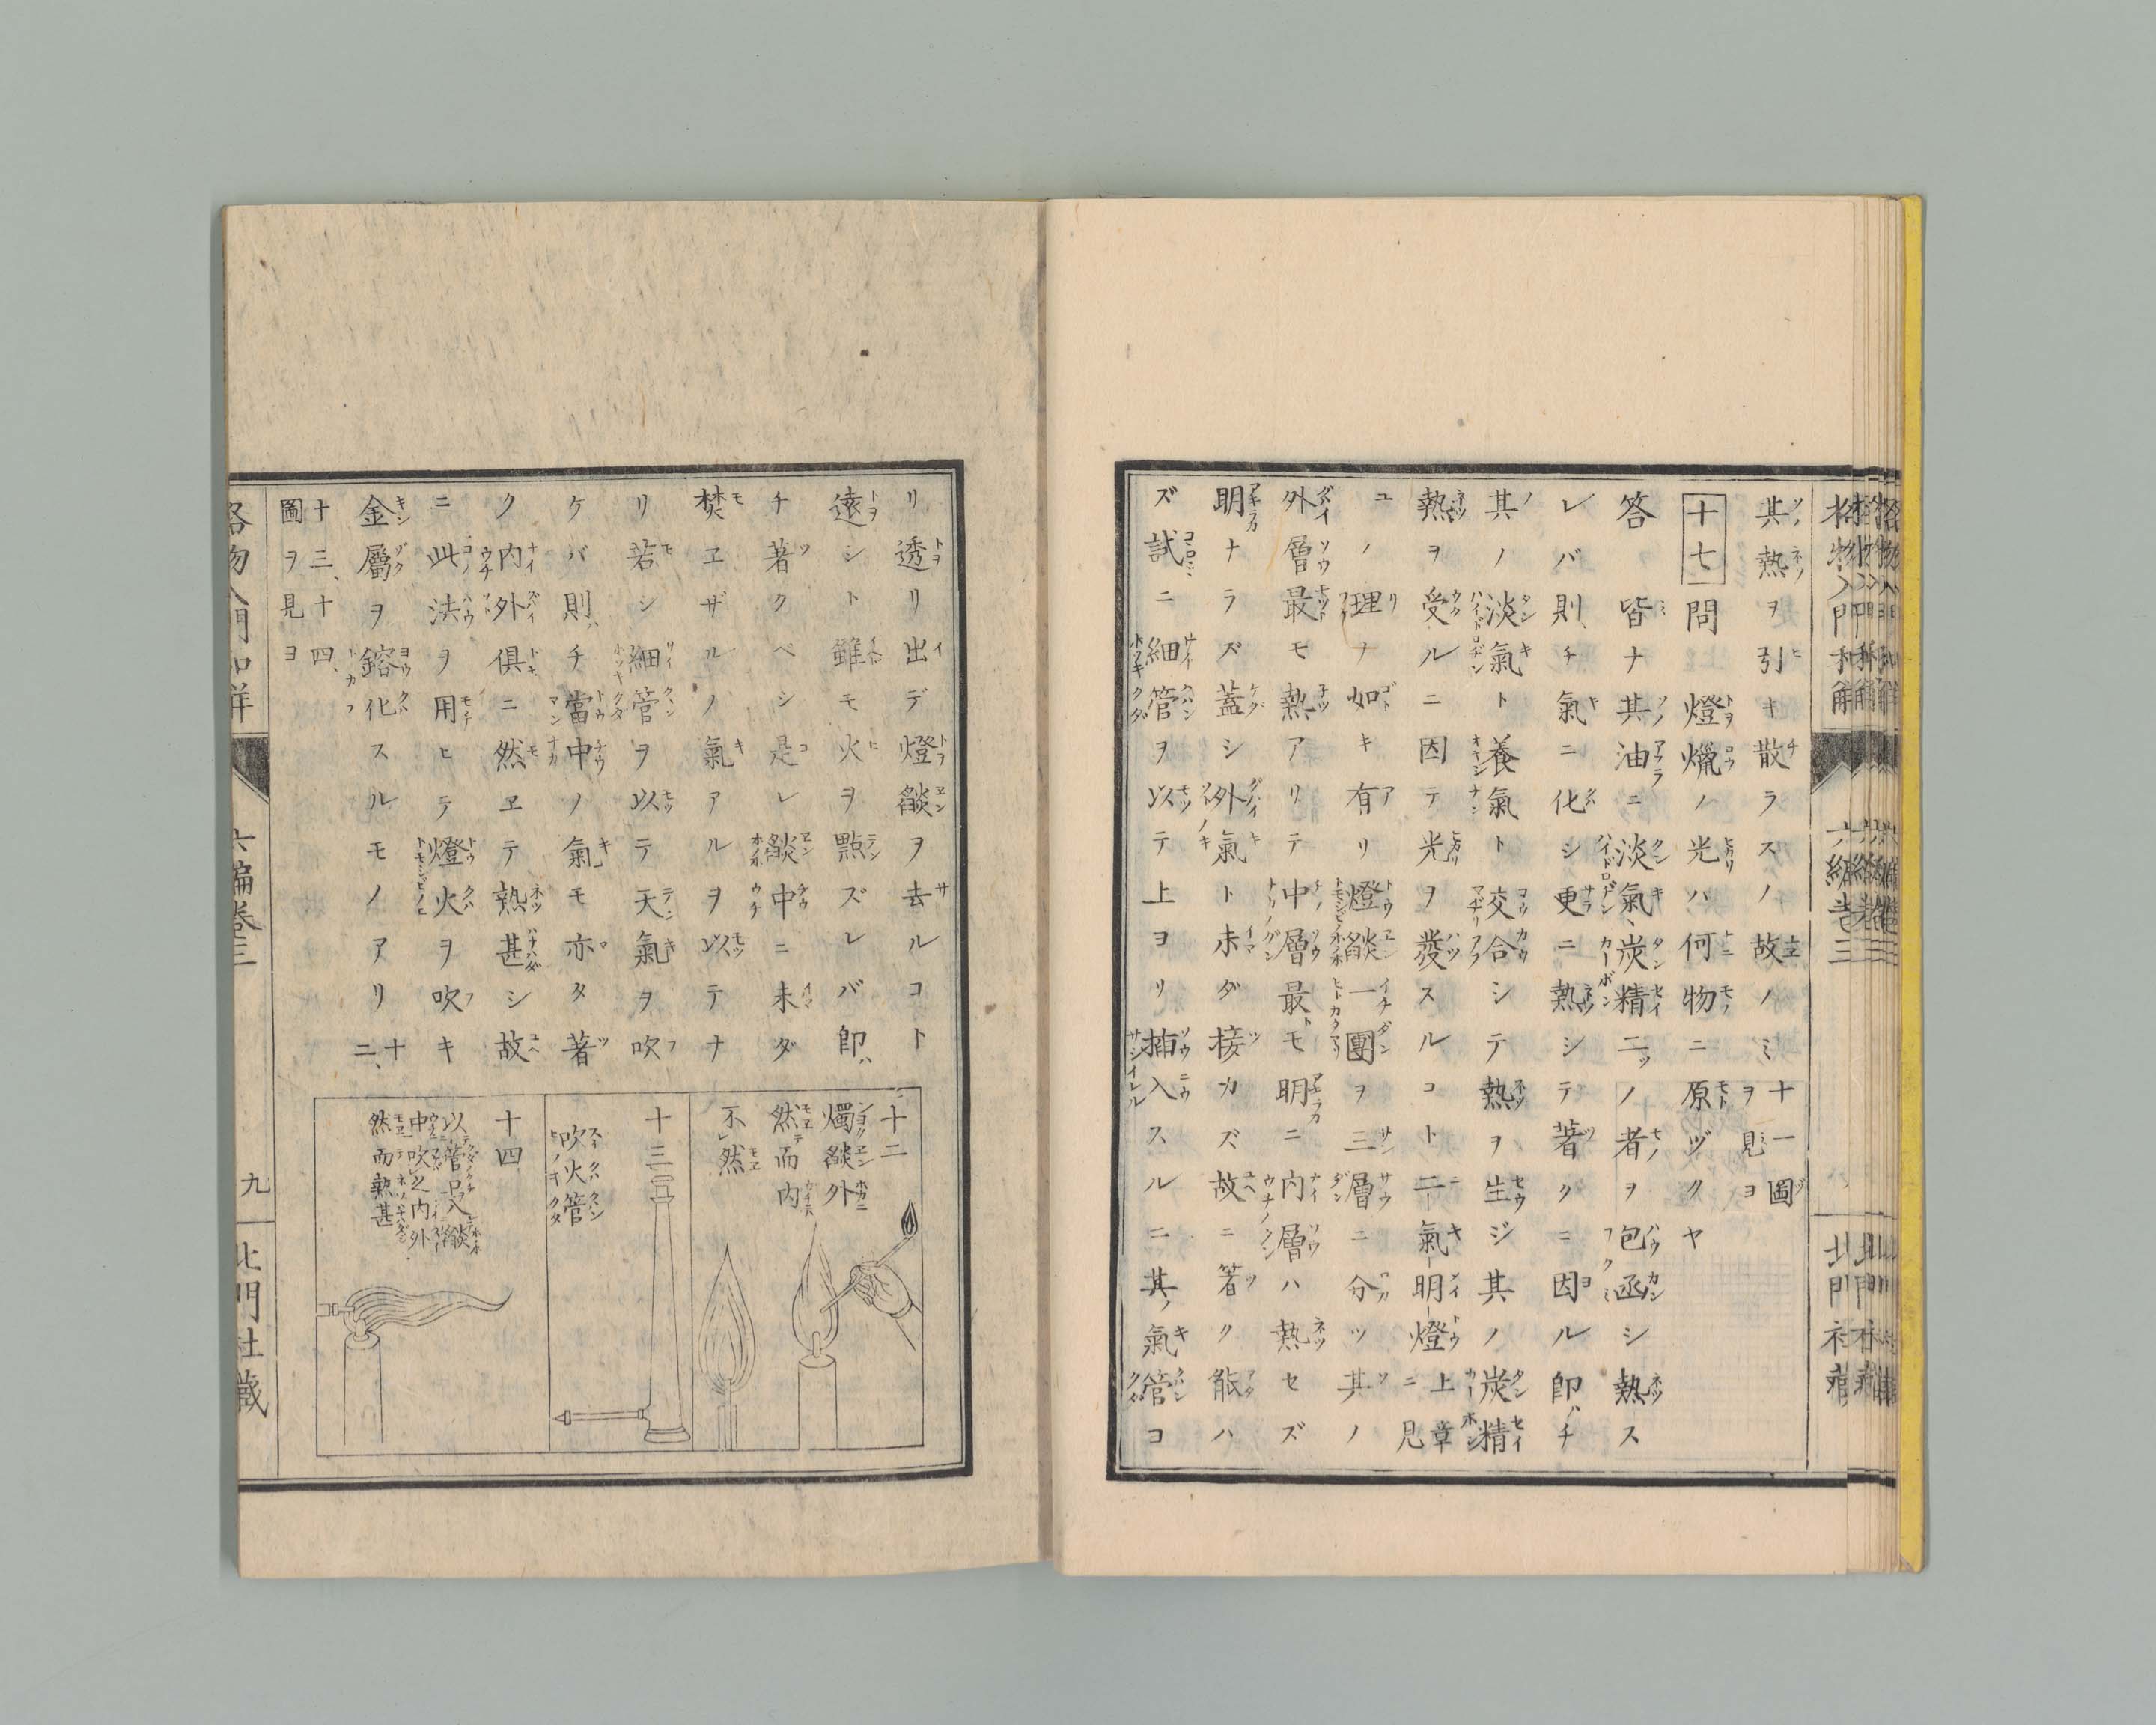 其熱ヲ引キ散ラスノ故ノミ十一圖ヲ見ヨ
十七問燈爉ノ光ハ何物ニ原ヅクヤ
答皆ナ其油ニ淡氣、炭精二ツノ者ヲ包函シ熱ス
レバ則チ氣ニ化シ更ニ熱シテ著クニ因ル即チ
其ノ淡氣ト養氣ト交合シテ熱ヲ生ジ其ノ炭精
熱ヲ受ルニ因テ光ヲ發スルコト二氣明燈上章ニ見
ユノ理ナ如キ有リ燈燄一團ヲ三層ニ分ツ其ノ
外層最モ熱アリテ中層最モ明ニ内層ハ熱セズ
明ナラズ蓋シ外氣ト未ダ接カズ故ニ著ク能ハ
ズ試ニ細管ヲ以テ上ヨリ插入スルニ其ノ氣管コ
リ透リ出デ燈燄ヲ去ルコト
遠シト雖モ火ヲ點ズレバ即
チ著クベシ是レ燄中ニ未ダ
焚ヱザルノ氣アルヲ以テナ
リ若シ細管ヲ以テ天氣ヲ吹
ケバ則チ當中ノ氣モ亦タ著
ノ内外俱ニ然ヱテ熱甚シ故
ニ此法ヲ用ヒテ燈火ヲ吹キ
金屬ヲ鎔化スルモノアリ十二、
十三、十四、圖ヲ見ヨ
十二
燭燄外
然而内
不然
十三
吹火管
十四
以管口入燄
中吹之内外
然而熱甚
格物入門和解
六編卷三
九
北門社藏
格物入門和解
六編卷三
北門社藏